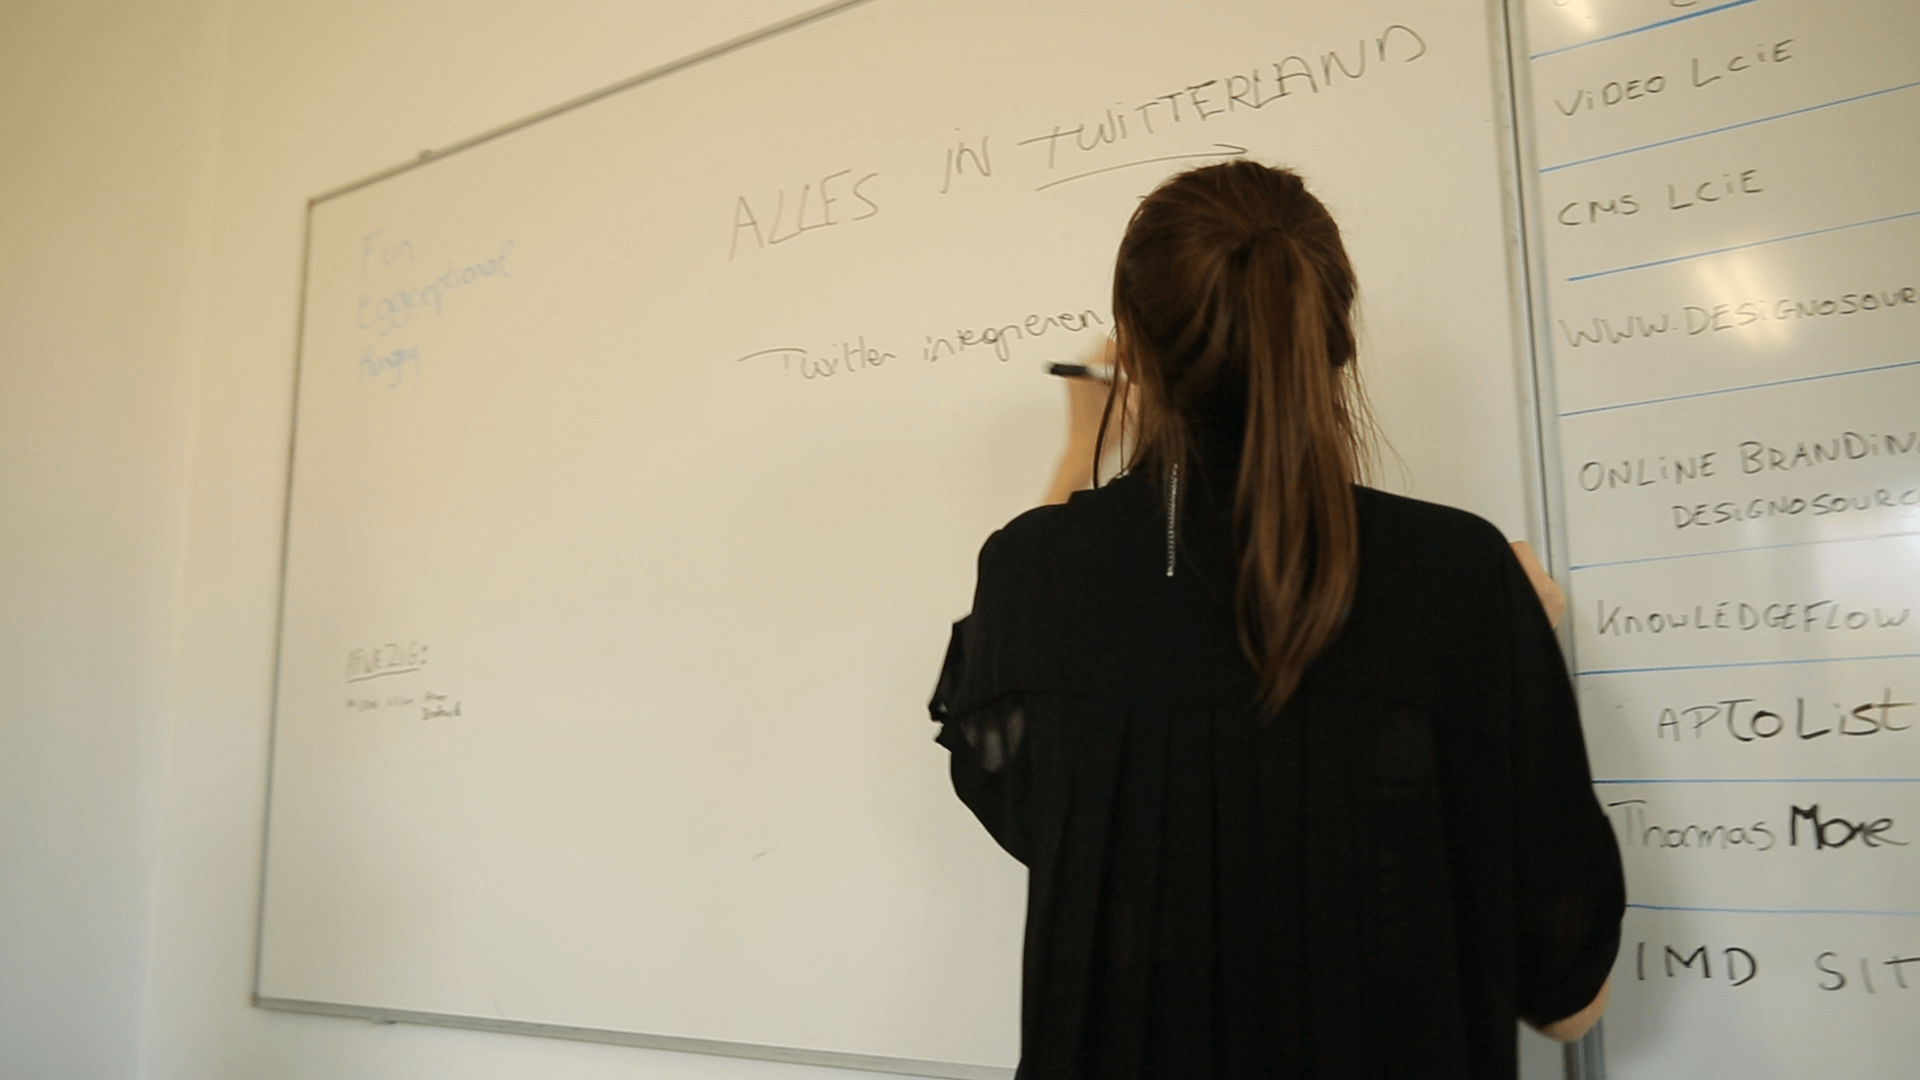 ALLES IN TWITTERLAND
Fun
Eggceptional
Hungry
Twitter integreren
AFWEZIG:
VIDEO LCiE
CMS LCiE
WWW.DESIGNOSOUR
ONLINE BRANDIN
DESIGNOSOURC
KNOWLEDGEFLOW
APToList
Thomas More
IMD SIT